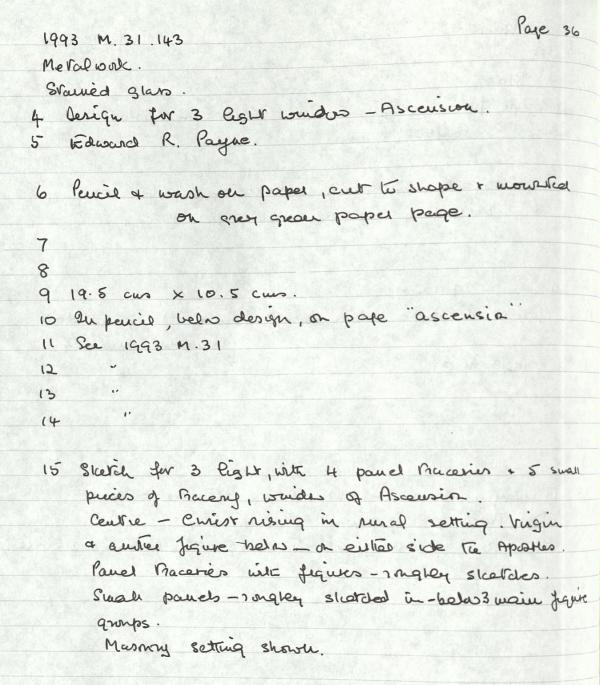 Page 36
1993 M.31.143
Metalwork.
Stained glass.
4 Design for 3 light window - Ascension.
5 Edward R. Payne.
6 Pencil & wash on paper, cut to shape & mounted
on grey green paper page.
7
8
9 19.5 cms x 10.5 cms.
10 In pencil, below design, on page "ascensia"
11 See 1993 M.31
12 "
13 "
14 "
15 Sketch for 3 light, with 4 panel traceries & 5 small
pieces of tracery, window of Ascension.
Centre - Christ rising in rural setting. Virgin
& another figure below - on either side the Apostles.
Panel traceries with figures - roughly sketched.
Small panels - roughly sketched in - below 3 main figure
groups.
Masonry setting shown.